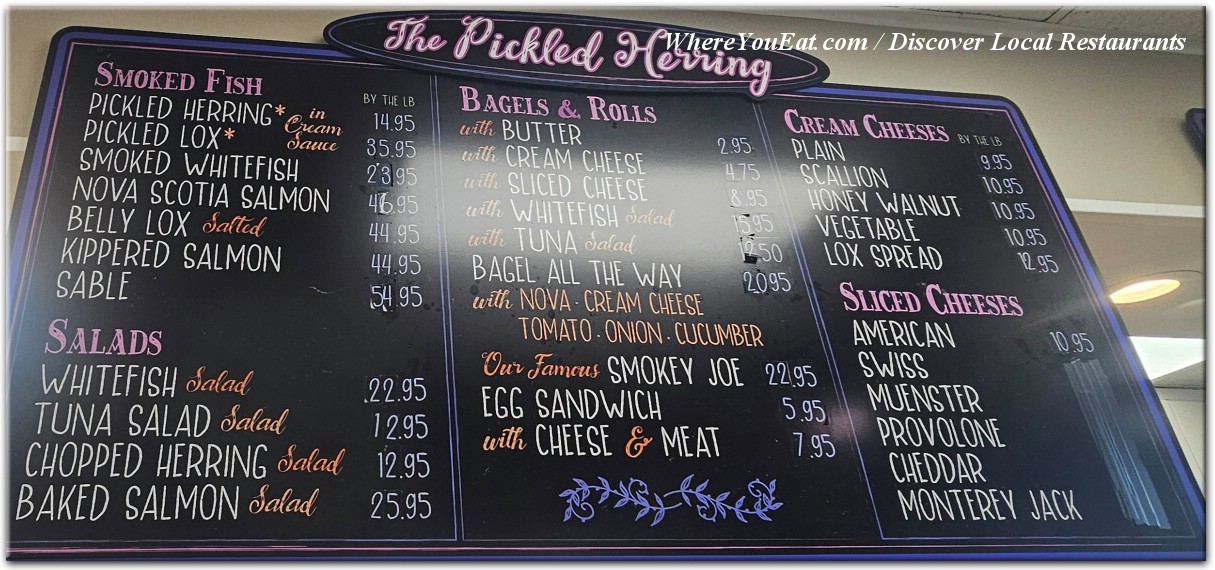 The Pickled Herring
WhereYouEat.com / Discover Local Restaurants
SMOKED FISH BY THE LB
PICKLED HERRING* in Cream Sauce 14.95
PICKLED LOX* 35.95
SMOKED WHITEFISH 23.95
NOVA SCOTIA SALMON 46.95
BELLY LOX Salted 44.95
KIPPERED SALMON 44.95
SABLE 54.95
SALADS
WHITEFISH Salad 22.95
TUNA SALAD Salad 12.95
CHOPPED HERRING Salad 12.95
BAKED SALMON Salad 25.95
BAGELS & ROLLS
with BUTTER 2.95
with CREAM CHEESE 4.75
with SLICED CHEESE 8.95
with WHITEFISH Salad 15.95
with TUNA Salad 12.50
BAGEL ALL THE WAY 20.95
with NOVA · CREAM CHEESE
TOMATO · ONION · CUCUMBER
Our Famous SMOKEY JOE 22.95
EGG SANDWICH 5.95
with CHEESE & MEAT 7.95
CREAM CHEESES BY THE LB
PLAIN 9.95
SCALLION 10.95
HONEY WALNUT 10.95
VEGETABLE 10.95
LOX SPREAD 12.95
SLICED CHEESES
AMERICAN 10.95
SWISS
MUENSTER
PROVOLONE
CHEDDAR
MONTEREY JACK